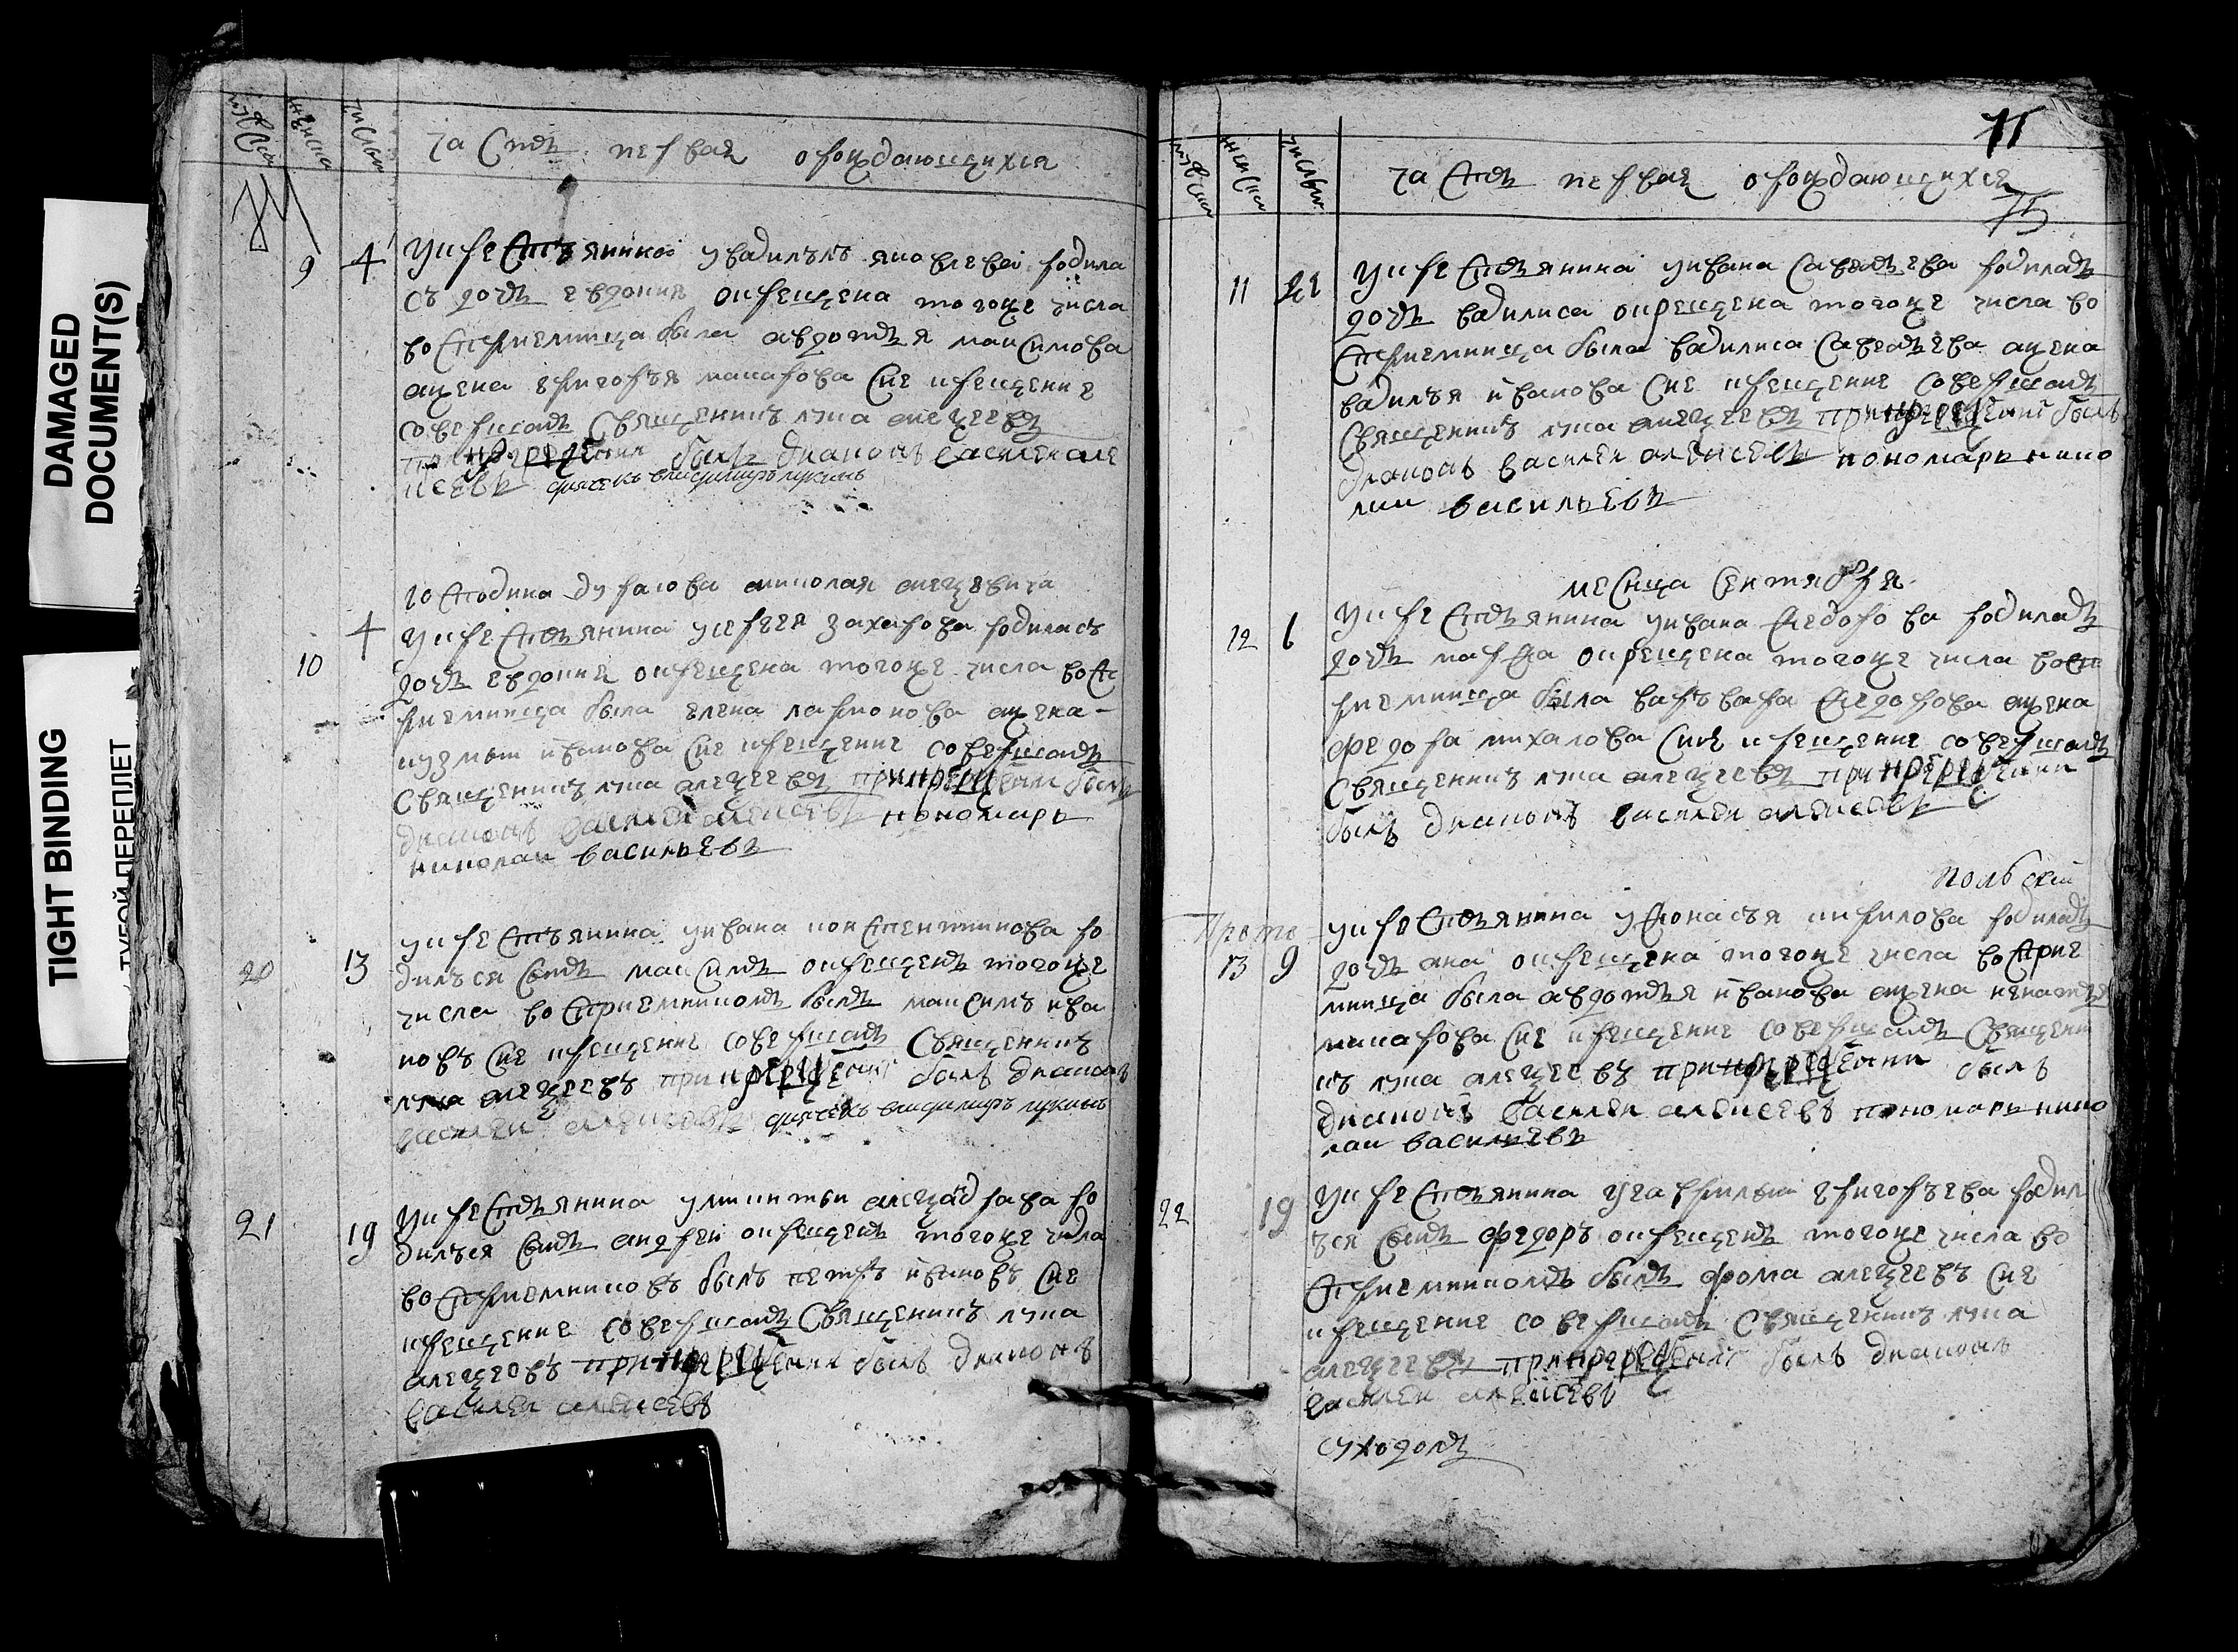 DAMAGED
DOCUMENT(S)
TIGHT BINDING
ТУГОЙ ПЕРЕПЛЕТ
мужска
женска
числы
Часть первая ораждающихся
9 4 у крестьянина у василья яковлева родила
сь дочь евдокия окрещена тогоже числа
восприемница была авдотья максимова
ажена григорья макарова сие крещение
совершалъ священникъ лука алеѯеевъ
при крещении былъ дьяконъ василеи але
ксеевъ дьячекъ владимиръ лукинъ
господина дурасова николая алеѯевича
10 4 у крестьянина у сергея захарова родилась
дочь евдокия окрещена тогоже числа восп
риемница была елена ларионова ажена
кузмы иванова сие крещение совершалъ
священникъ лука алеѯеевъ при крещении былъ
дьяконъ василеи алексеевъ пономарь
николаи васильевъ
20 13 у крестьянина у ивана констентинова ро
дилъся сынъ максимъ окрещенъ тогоже
числа восприемникомъ былъ максимъ ива
новъ сие крещение совершалъ священникъ
лука алеѯеевъ при крещении былъ дьяконъ
василеи алексеевъ дьячекъ владимиръ лукинъ
21 19 у крестьянина у никиты алеѯадрава ро
дилъся сынъ андреи окрещенъ тогоже числа
восприемникомъ былъ петръ ивановъ сие
крещение совершалъ священникъ лука
алеѯеовъ при крещении былъ дьяконъ
василеи алексеевъ
75
мужска
женска
числы
Часть первая ораждающихся
75
11 22 у крестьянина у ивана савельева родилась
дочь василиса окрещена тогоже числа во
сприемница была василиса савельева ажена
василья иванова сие крещение совершалъ
священникъ лука алеѯеевъ при крещении былъ
дьяконъ василеи алексеевъ пономарь нико
лаи васильевъ
месица сентября
12 6 у крестьянина у ивана федорова родилась
дочь марфа окрещена тогоже числа восп
риемница была варъвара федорова ажена
федора михалова сие крещение совершалъ
священникъ лука алеѯеевъ при крещении
былъ дьяконъ василеи алексеевъ
польскии
13 9 у крестьянина у афонасья кирилова родилась
дочь ана окрещена тогоже числа восприе
мница была авдотья иванова ажена игнатья
макарова сие крещение совершалъ священни
къ лука алеѯеевъ при крещении былъ
дьяконъ василеи алексеевъ пономарь нико
лаи васильевъ
22 19 у крестьянина у гаврилы григорьева родил
ъся сынъ федоръ окрещенъ тогоже числа во
сприемникомъ былъ фома алеѯеевъ сие
крещение совершалъ священникъ лука
алеѯеевъ при крещении былъ дьяконъ
василеи алексеевъ
суходолъ